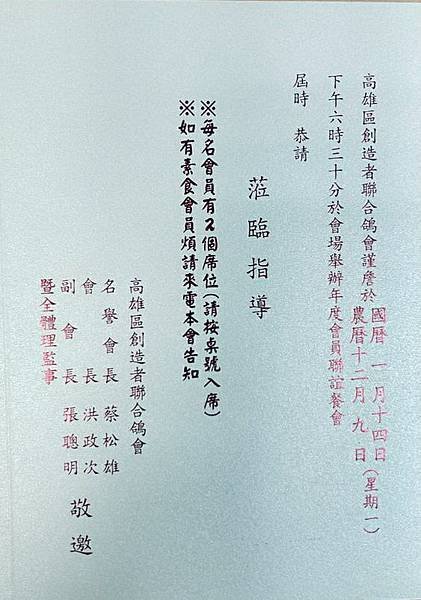 高雄區創造者聯合鴿會謹詹於
國曆 一月十四日
農曆十二月九日
(星期一)
下午六時三十分於會場舉辦年度會員聯誼餐會
屆時 恭請
蒞臨指導
※每名會員有2個席位(請按桌號入席)
※如有素食會員煩請來電本會告知
高雄區創造者聯合鴿會
名譽會長 蔡松雄
會長 洪政次
副會長 張聰明
暨全體理監事
敬邀